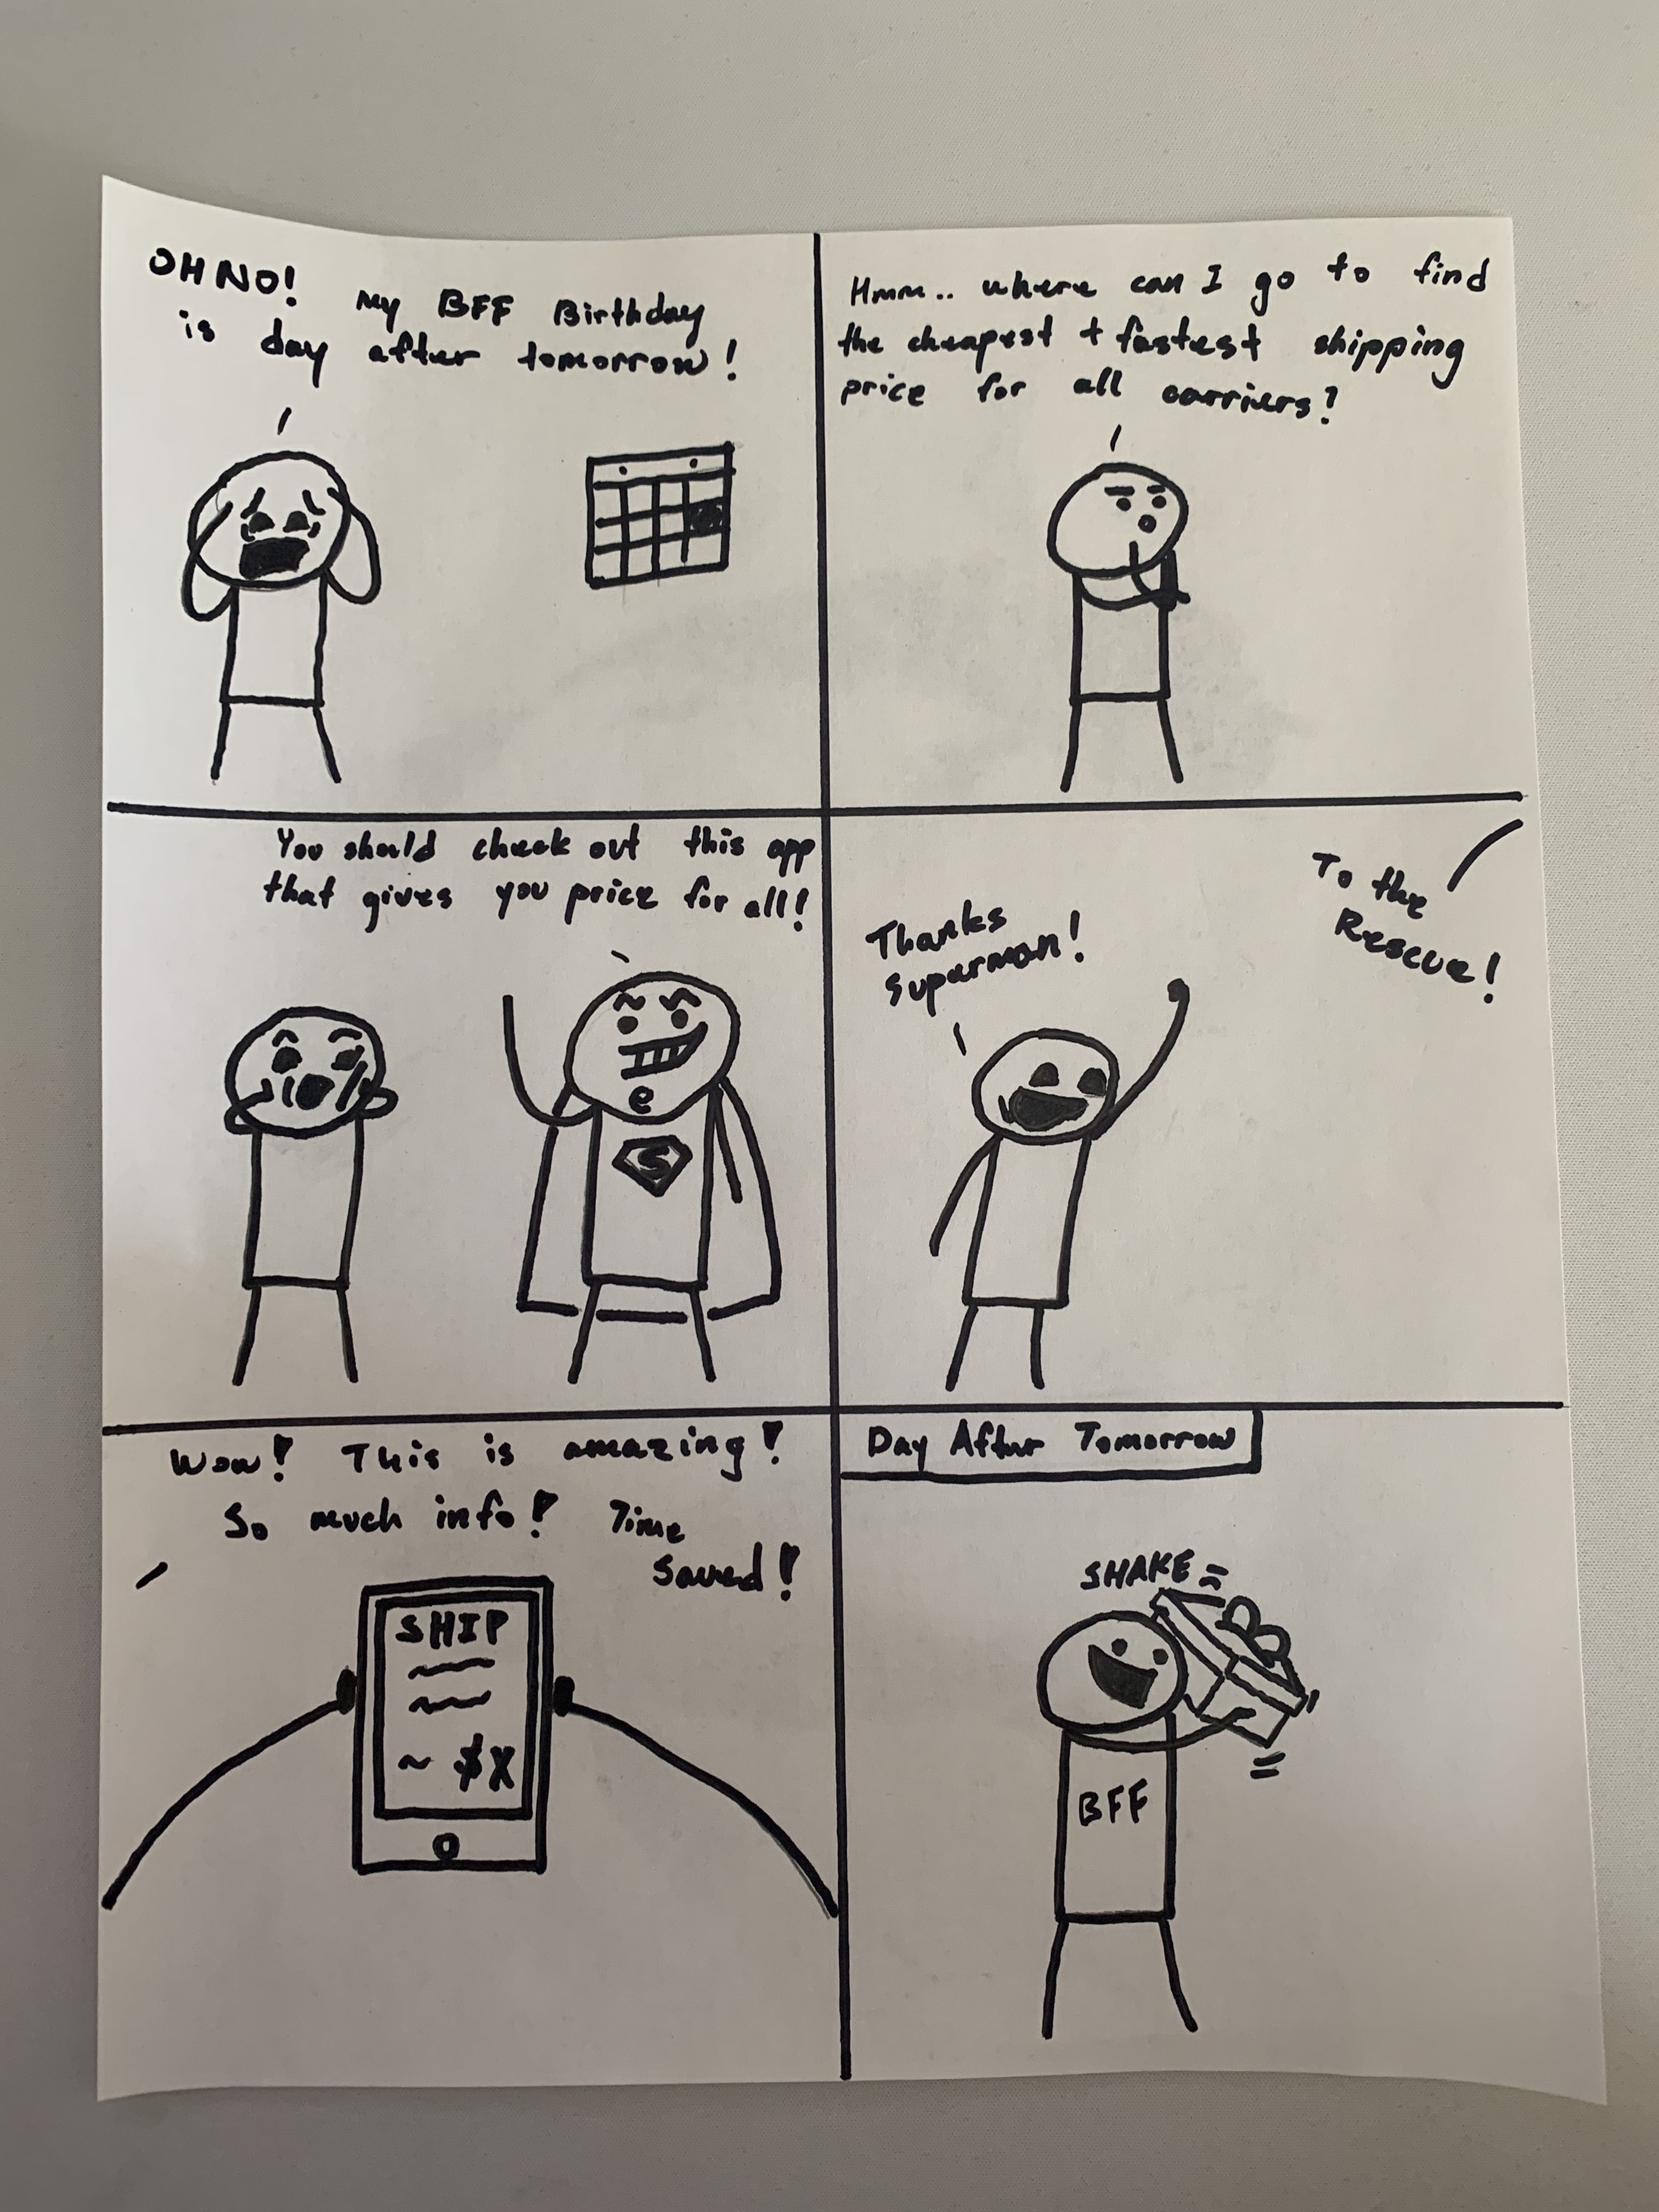 OH NO! My BFF Birthday
is day after tomorrow!
Hmm.. where can I go to find
the cheapest + fastest shipping
price for all carriers?
You should check out this app
that gives you price for all!
S
Thanks
Superman!
To the
Rescue!
Wow! This is amazing!
So much info! Time
saved!
SHIP
~ $X
Day After Tomorrow
SHAKE
BFF